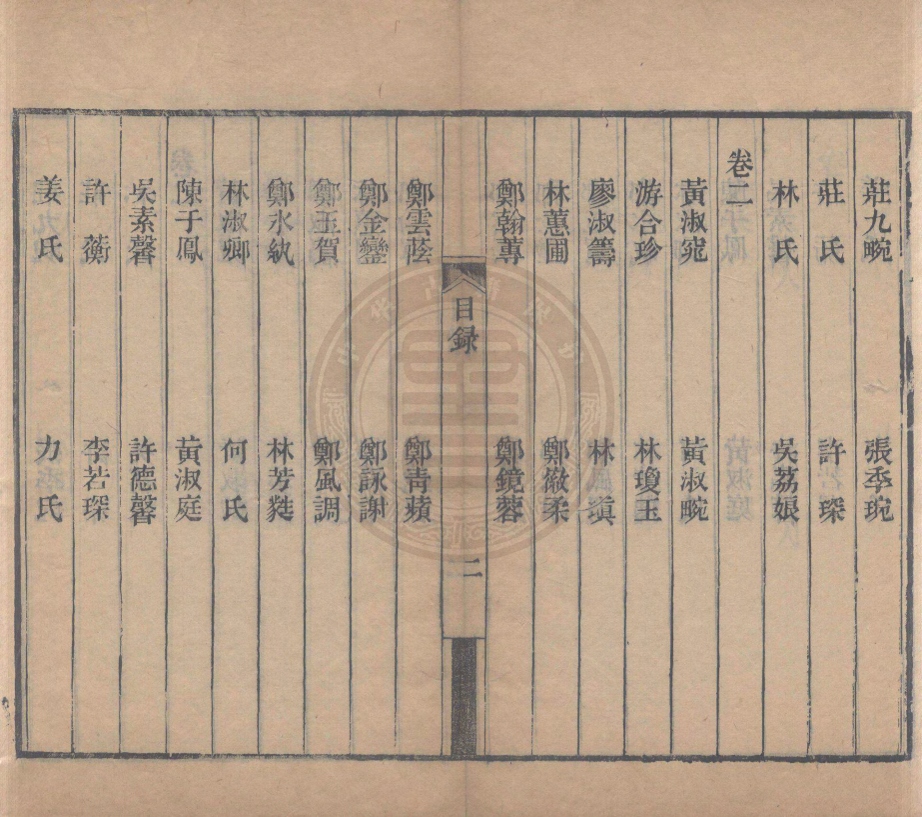 莊九畹 張季琬
莊氏 許琛
林氏 吳荔娘
卷二
黃淑窕 黃淑畹
游合珍 林瓊玉
廖淑籌 林瑱
林蕙圃 鄭徽柔
鄭翰蓴 鄭鏡蓉
目録 二
鄭雲蔭 鄭青蘋
鄭金鑾 鄭詠謝
鄭玉賀 鄭風調
鄭冰紈 林芳蕤
林淑卿 何氏
陳于鳳 黃淑庭
吳素馨 許德馨
許蘅 李若琛
姜氏 力氏